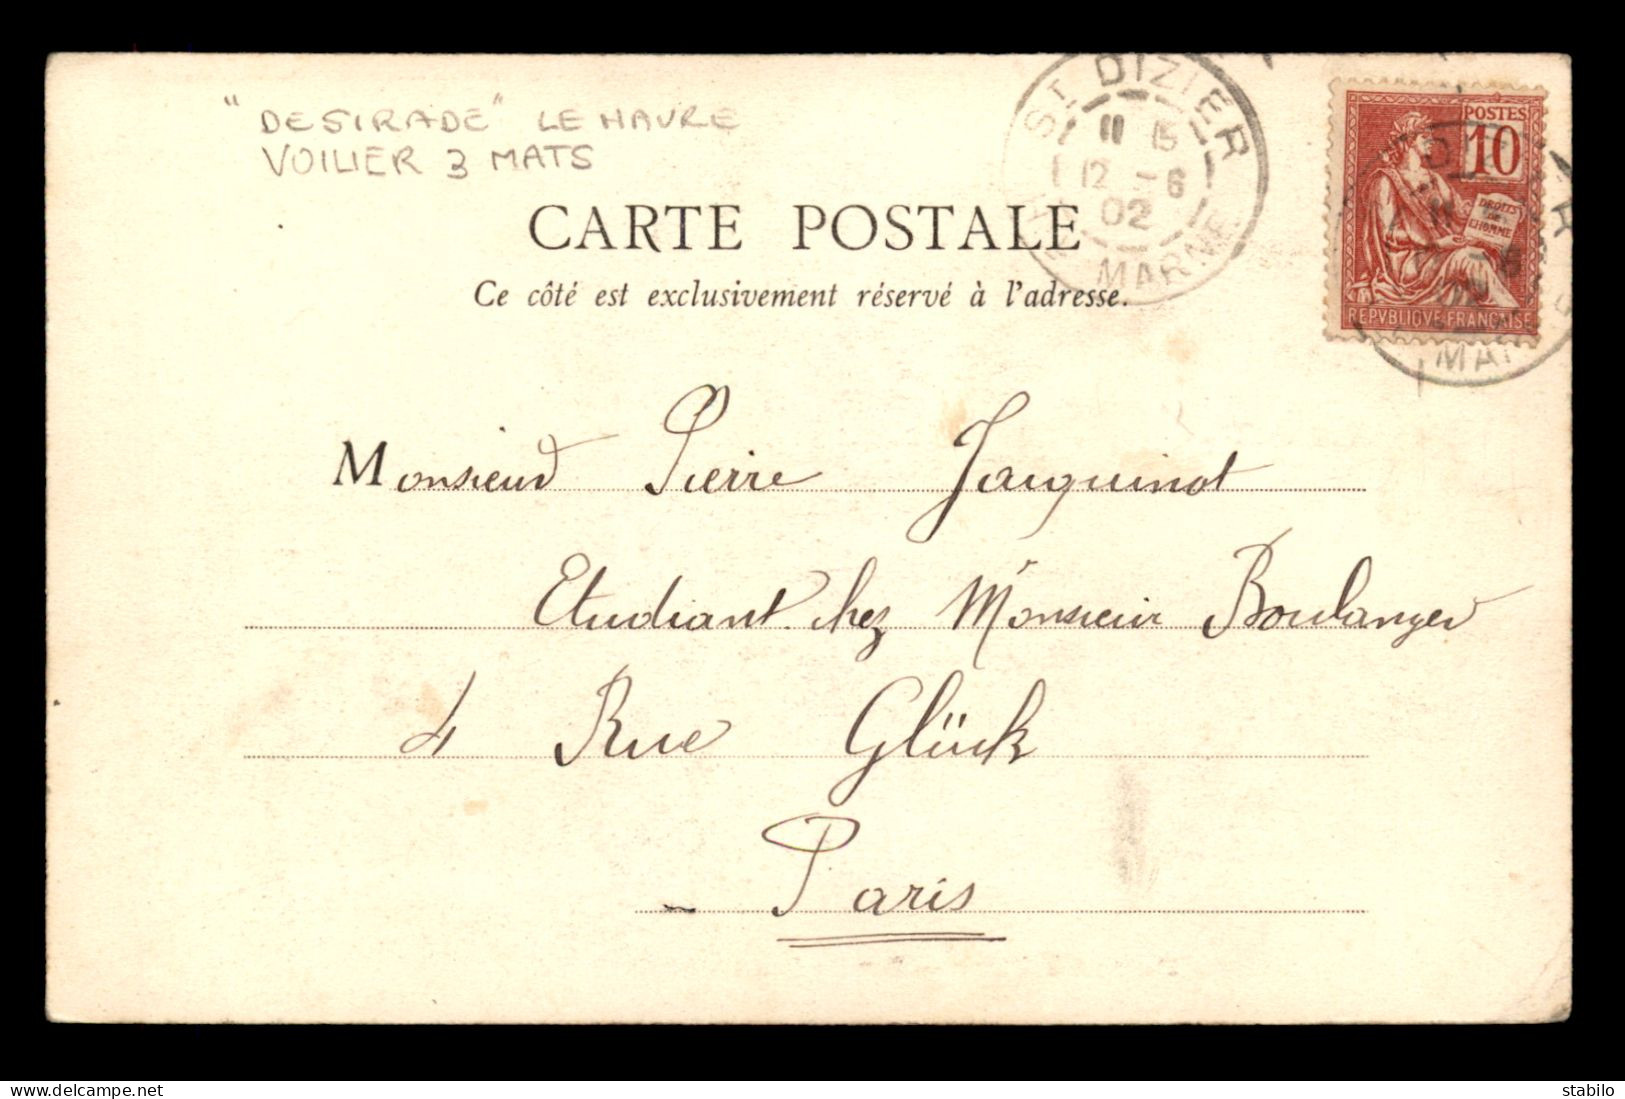 "DESIRADE" LE HAVRE
VOILIER 3 MATS
ST DIZIER
11 15
12 - 6
02
MARNE
POSTES
10
DROITS
DE
L'HOMME
REPVBLIQVE FRANÇAISE
CARTE POSTALE
Ce côté est exclusivement réservé à l'adresse.
Monsieur Pierre Jacquinot
Etudiant chez Monsieur Boulanger
4 Rue Glück
Paris
stabilo